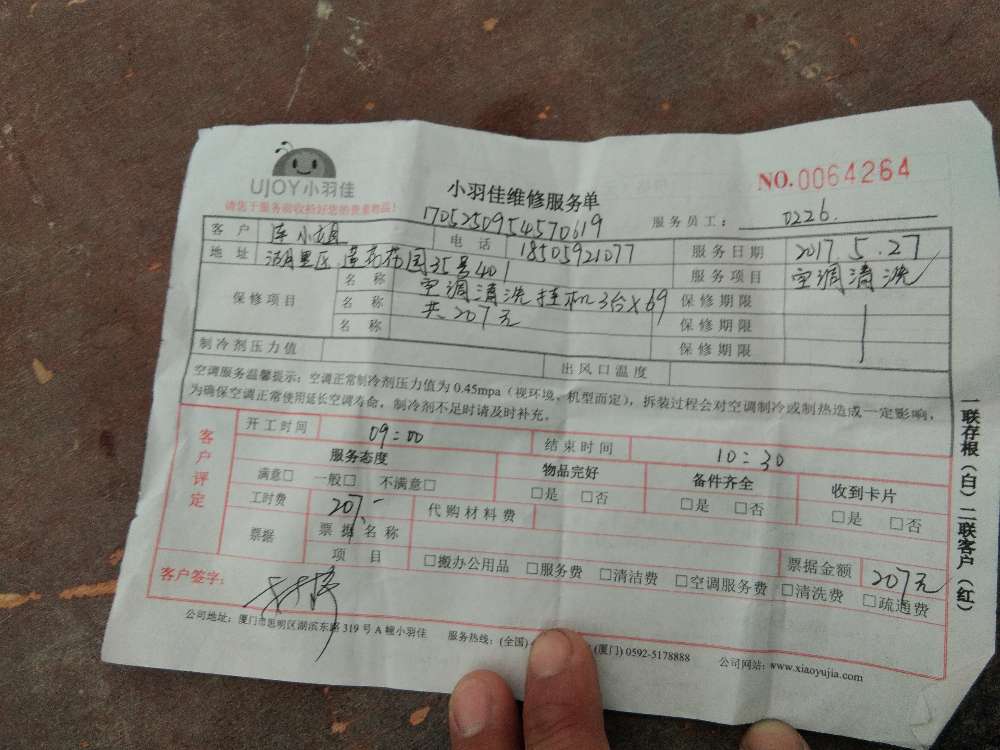 UJOY小羽佳
小羽佳维修服务单
NO.0064264
请您于服务前收拾好您的贵重物品!
1705250954570619
服务员工: 0226.
客户 小姐 电话 18505921077 服务日期 2017.5.27
地址 湖里区 莲花花园35号401 服务项目 空调清洗
保修项目 名称 空调清洗挂机3台×69 保修期限
名称 共207元 保修期限
名称 保修期限
制冷剂压力值 出风口温度
空调服务温馨提示:空调正常制冷剂压力值为0.45mpa(视环境、机型而定),拆装过程会对空调制冷或制热造成一定影响,
为确保空调正常使用延长空调寿命,制冷剂不足时请及时补充。
客户评定
开工时间 09:00 结束时间 10:30
服务态度 物品完好 备件齐全 收到卡片
满意□ 一般□ 不满意□ □是 □否 □是 □否 □是 □否
工时费 207.- 代购材料费
票据 票据名称
项目 □搬办公用品 □服务费 □清洁费 □空调服务费 □清洗费 □疏通费
票据金额 207元
客户签字:
公司地址:厦门市思明区湖滨东路319号A幢小羽佳 服务热线:(全国) (厦门) 0592-5178888 公司网站:www.xiaoyujia.com
一联存根(白)二联客户(红)